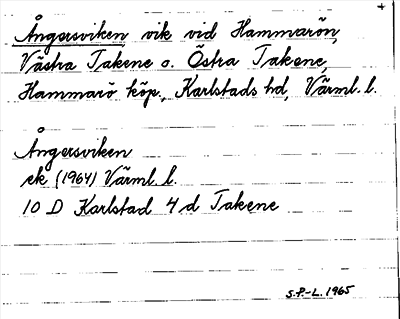 Ångersviken vik vid Hammarön,
Västra Takene o. Östra Takene,
Hammarö köp., Karlstads hd, Värml. l.
Ångersviken
ek (1964) Värml. l.
10 D Karlstad 4 d Takene
S.P-L. 1965